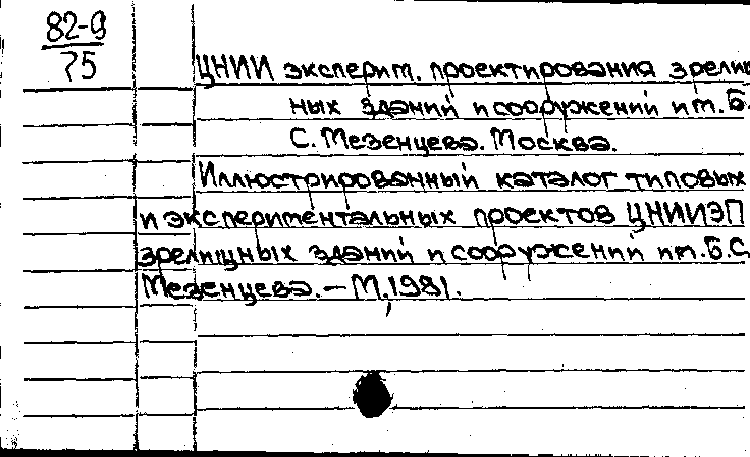 82-9
75
ЦНИИ эксперим. проектирования зрелищ
ных зданий и сооружений им. Б.
С. Мезенцева. Москва.
Иллюстрированный каталог типовых
и экспериментальных проектов ЦНИИЭП
зрелищных зданий и сооружений им. Б.С.
Мезенцева. – М., 1981.